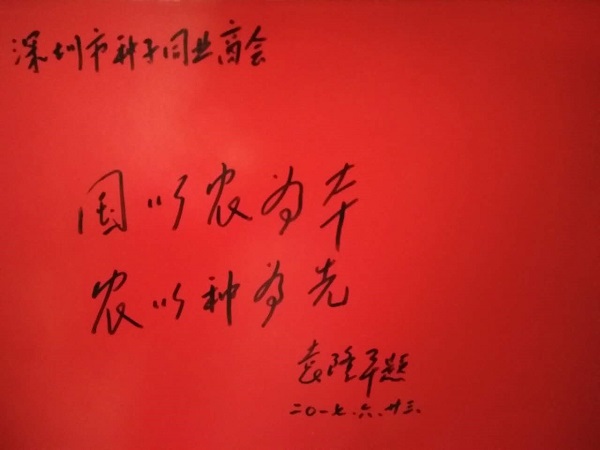 深圳市种子同业商会
国以农为本
农以种为先
袁隆平题
二〇一七.六.廿三.